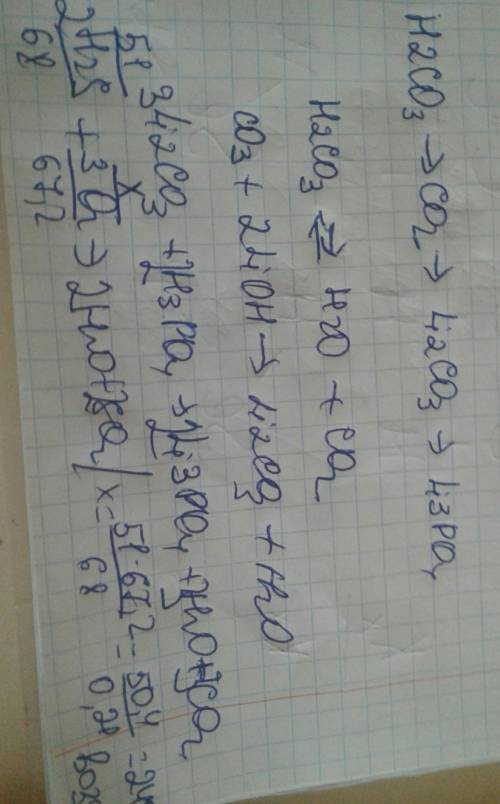 H2CO3 → CO2 → Li2CO3 → Li3PO4
H2CO3 ⇄ H2O + CO2
CO3 + 2LiOH → Li2CO3 + H2O
3Li2CO3 + 2H3PO4 → 2Li3PO4 + 3H2O + 3CO2
51 x
2H2S + 3O2 → 2H2O + 2SO2 / x = 51·67,2 / 68 = 50,4 / 0,21 = 24
68 67,2